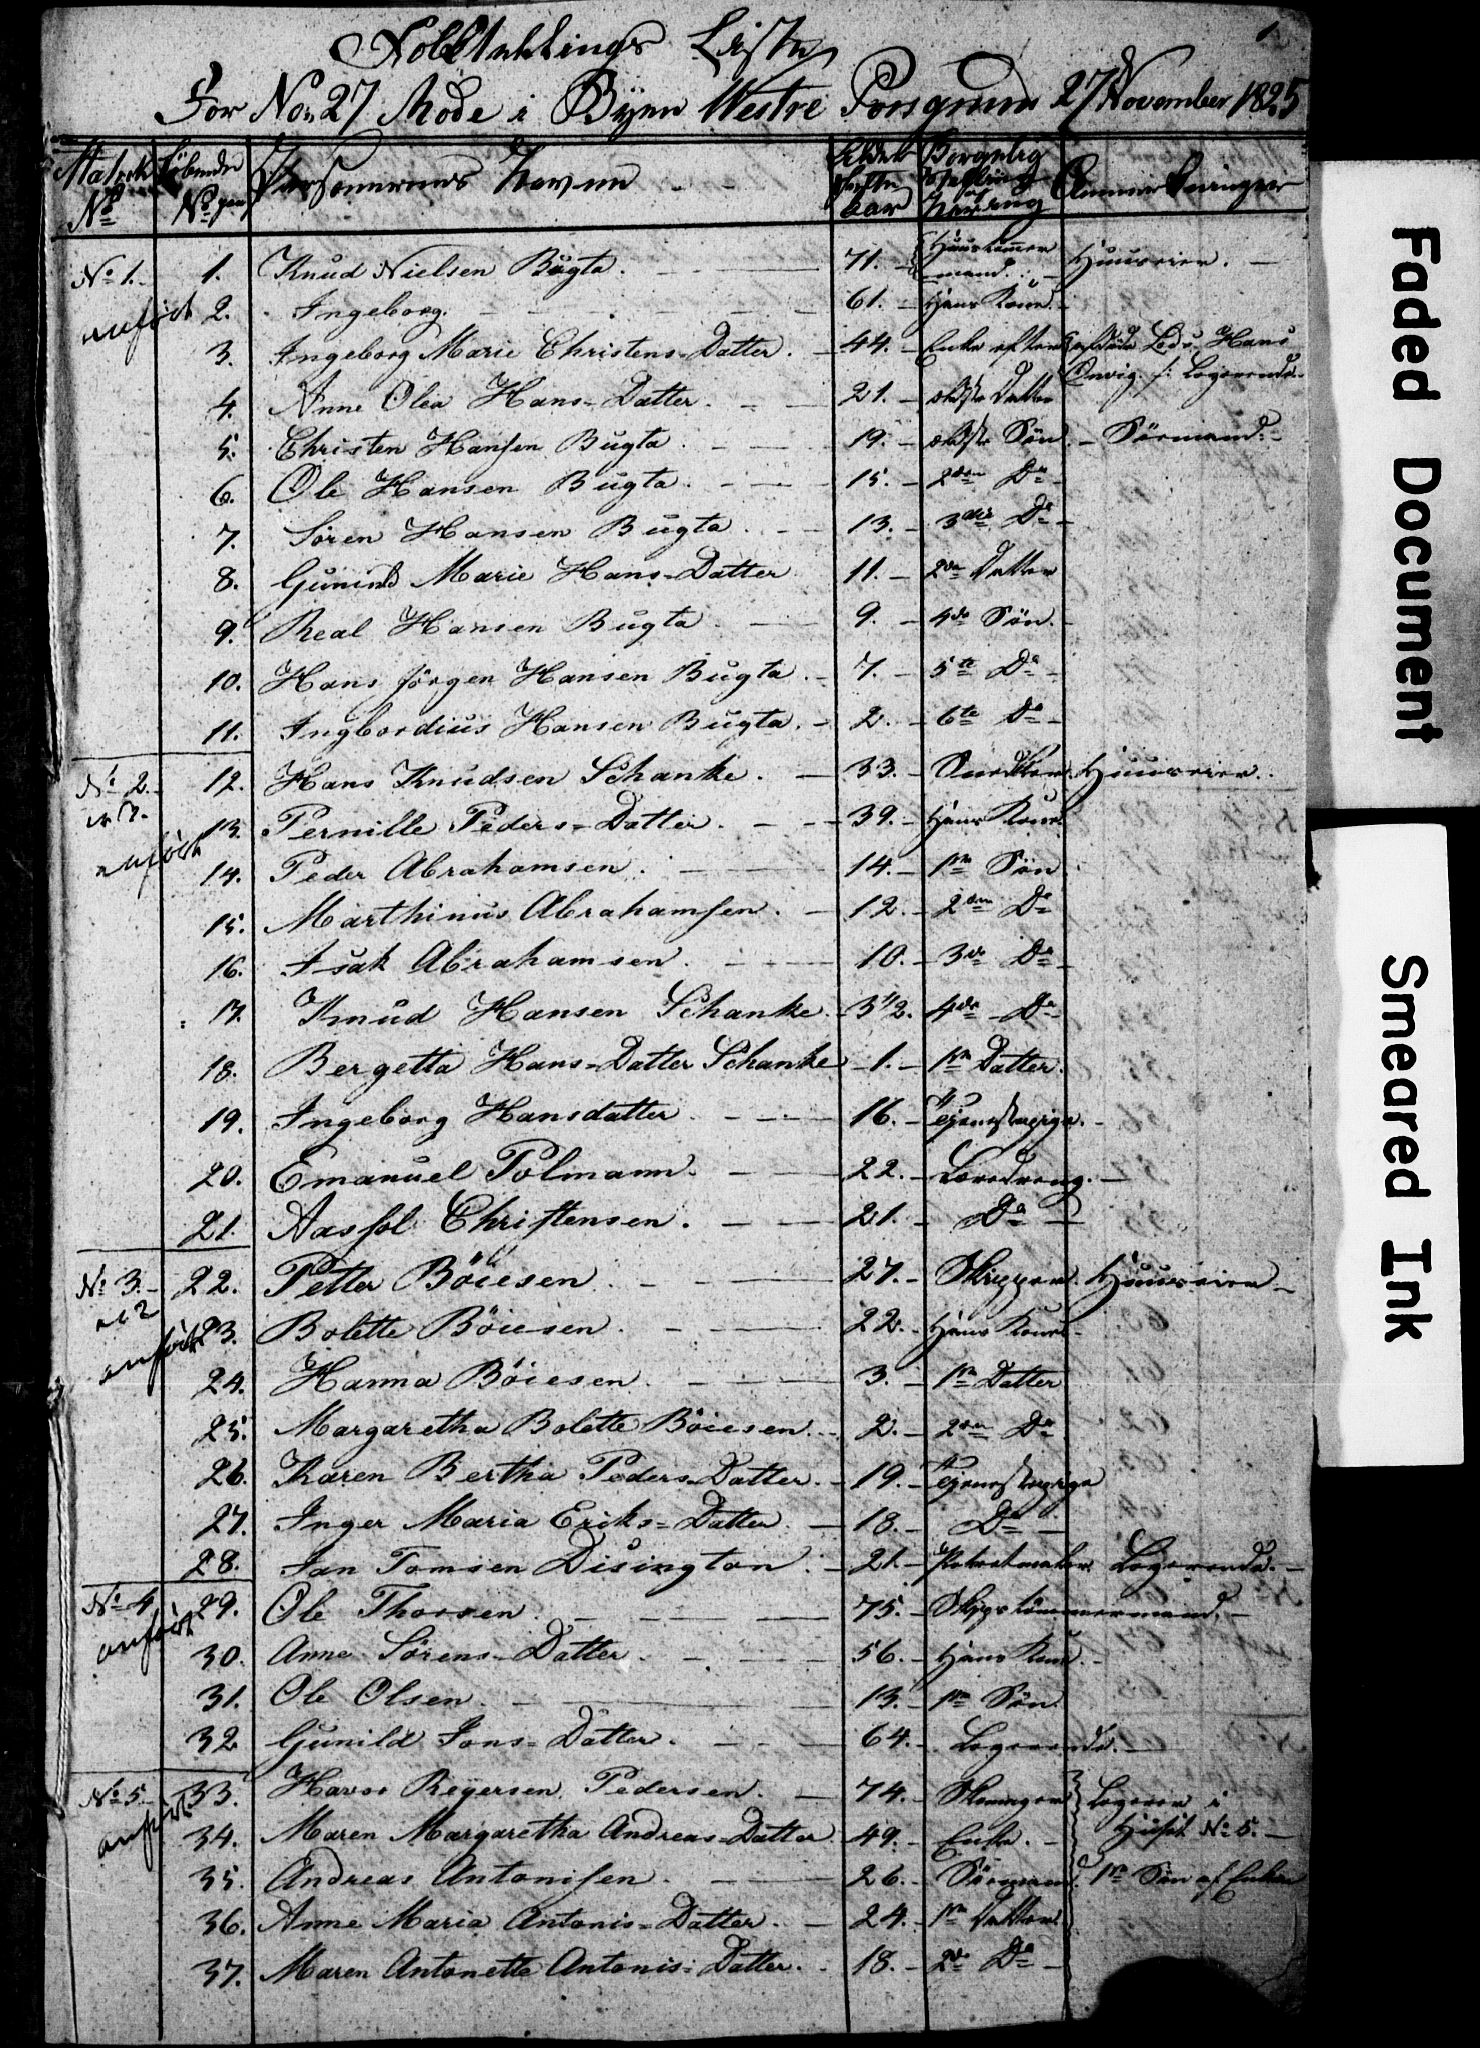 Folketellings Liste
For No 27 Rode i Byen Westre Porsgrund 27 November 1825
Matrik Løbende Personernes Navne Alder Borgerlig Anmærkninger
No No aar
No 1. 1. Knud Nielsen Bugta. 71. Huustømmermand. Huuseier.
anført 2. Ingeborg. 61. Hans Kone.
3. Ingeborg Marie Christens-Datter. 44. Enke efter Lods Hans
4. Anne Olea Hans-Datter. 21. ældste Datter Logerende.
5. Christen Hansen Bugta 19. ældste Søn. Sømand.
6. Ole Hansen Bugta. 15. 2den Do
7. Søren Hansen Bugta. 13. 3die Do
8. Gunild Marie Hans-Datter 11. 2den Datter
9. Real Hansen Bugta. 9. 4de Søn.
10. Hans Jörgen Hansen Bugta. 7. 5te Do
11. Ingbordius Hansen Bugta. 2. 6te Do
No 2. 12. Hans Knudsen Schanke. 33. Snedker. Huuseier.
13. Pernille Peders-Datter. 39. Hans Kone
anført 14. Peder Abrahamsen. 14. 1ste Søn
15. Marthinus Abrahamsen. 12. 2den Do
16. Isak Abrahamsen. 10. 3die Do
17. Knud Hansen Schanke. 3 1/2. 4de Do
18. Bergetta Hans-Datter Schanke 1. 1ste Datter.
19. Ingeborg Hansdatter 16. Tjenestepige.
20. Emanuel Polmann. 22. Læredreng.
21. Aassol Christensen. 21. Do
No 3. 22. Petter Böiesen. 27. Skipper. Huuseier
anført 23. Bolette Böiesen. 22. Hans Kone
24. Hanna Böiesen. 3. 1ste Datter
25. Margaretha Bolette Böiesen. 2. 2den Do
26. Karen Bertha Peders-Datter. 19. Tjenestepige
27. Inger Maria Eriks-Datter. 18. Do
28. Jan Tomsen Disington. 21. Logerende.
No 4 29. Ole Thorsen. 75. Skipstømmermand.
anført 30. Anne Sörens-Datter. 56. Hans Kone.
31. Ole Olsen. 13. 1ste Søn
32. Gunild Jons-Datter. 64. Logerende.
No 5 33. Havor Reyersen Pedersen. 74. Logerer i
anført 34. Maren Margaretha Andreas-Datter. 49. Enke. Huset No 5.
35. Andreas Antonisen. 26. Sømand. 1ste Søn af Enken
36. Anne Maria Antonis-Datter. 24. 1ste Datter.
37. Maren Antonette Antonis-Datter. 18. 2den Do
Faded Document
Smeared Ink